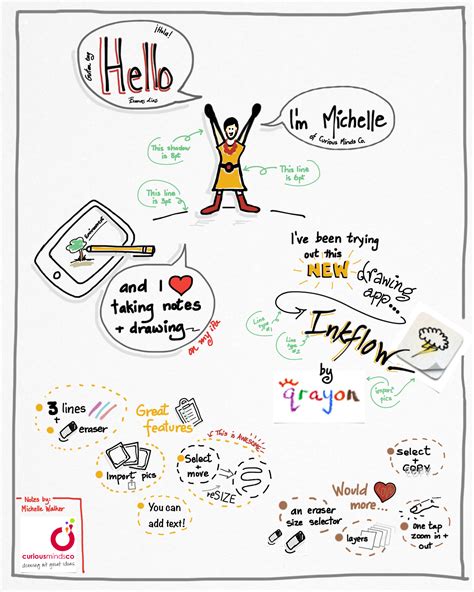 ¡Hola!
Hello
Buenos Dias
I'm Michelle
of Curious Minds Co.
This shadow
is 8pt
This line
is 5pt
This line is
3pt
and I
taking notes
+ drawing
on my iPad
I've been trying
out this
NEW
drawing
app...
Line
type
#1
Line
type
#2
Inkflow
by
qrayon
import
pics
3 lines
+
eraser
Great
features
Import pics
THIS is AWESOME!
Select
+
move
reSIZE
You can
add text!
select
+
COPY
Would
more...
an eraser
size selector
layers
one tap
zoom in +
out
Notes by:
Michelle Walker
curiousmindsco
drawing out great ideas